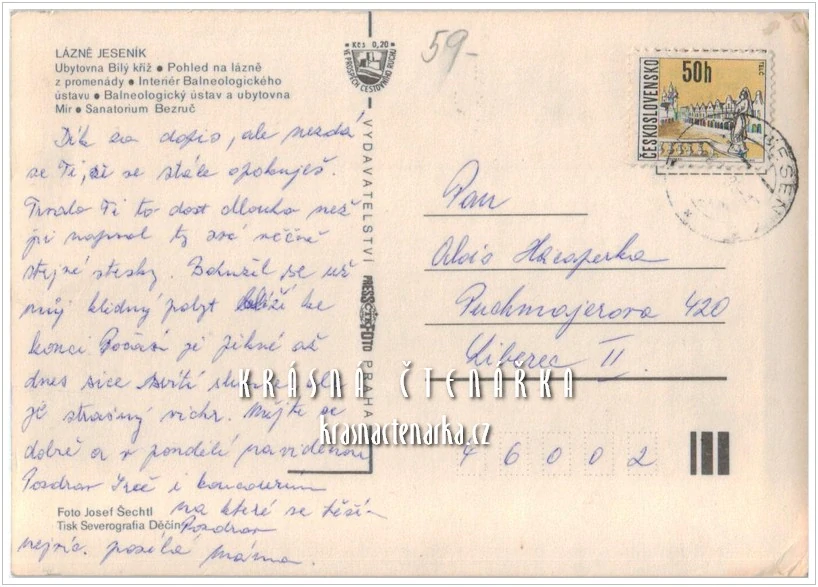 LÁZNĚ JESENÍK
Ubytovna Bílý kříž • Pohled na lázně
z promenády • Interiér Balneologického
ústavu • Balneologický ústav a ubytovna
Mír • Sanatorium Bezruč
Dík za dopis, ale nezdá
se Ti, že se stále opakuješ.
Trvalo Ti to dost dlouho než
jsi napsal ty své věčně
stejné stesky. Bohužel se už
můj klidný pobyt blíží ke
konci Počasí je
dnes sice svítí
je strašný vichr. Mějte se
dobře a v pondělí navidenou
Pozdrav i
na které se těším
Pozdrav
nejvíc. posílá máma.
Foto Josef Šechtl
Tisk Severografia Děčín
Kčs 0,20
VE PROSPĚCH CESTOVNÍHO RUCHU
VYDAVATELSTVÍ PRESSFOTO PRAHA
59-
ČESKOSLOVENSKO
50h
TELČ
JESENÍK
Pan
Alois
Puchmajerova 420
Liberec II
46002
KRÁSNÁ ČTENÁRKA
krasnactenarka.cz